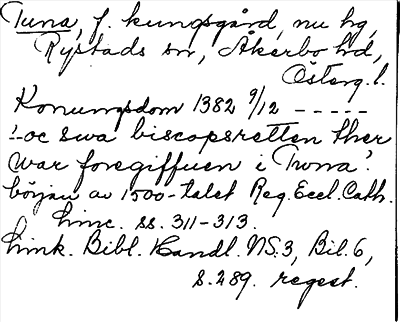 Tuna, f. kungsgård, nu hg,
Rystads sn, Åkerbo hd,
Österg. l.
Konungsdom 1382 9/12 - - - - -
'-oc swa biscopsretten ther
war foregiffuen i Twna'.
början av 1500-talet Reg. Eccl. Cath.
Linc. ss. 311-313.
Link. Bibl. Handl. NS. 3, Bil. 6,
s. 289. regest.